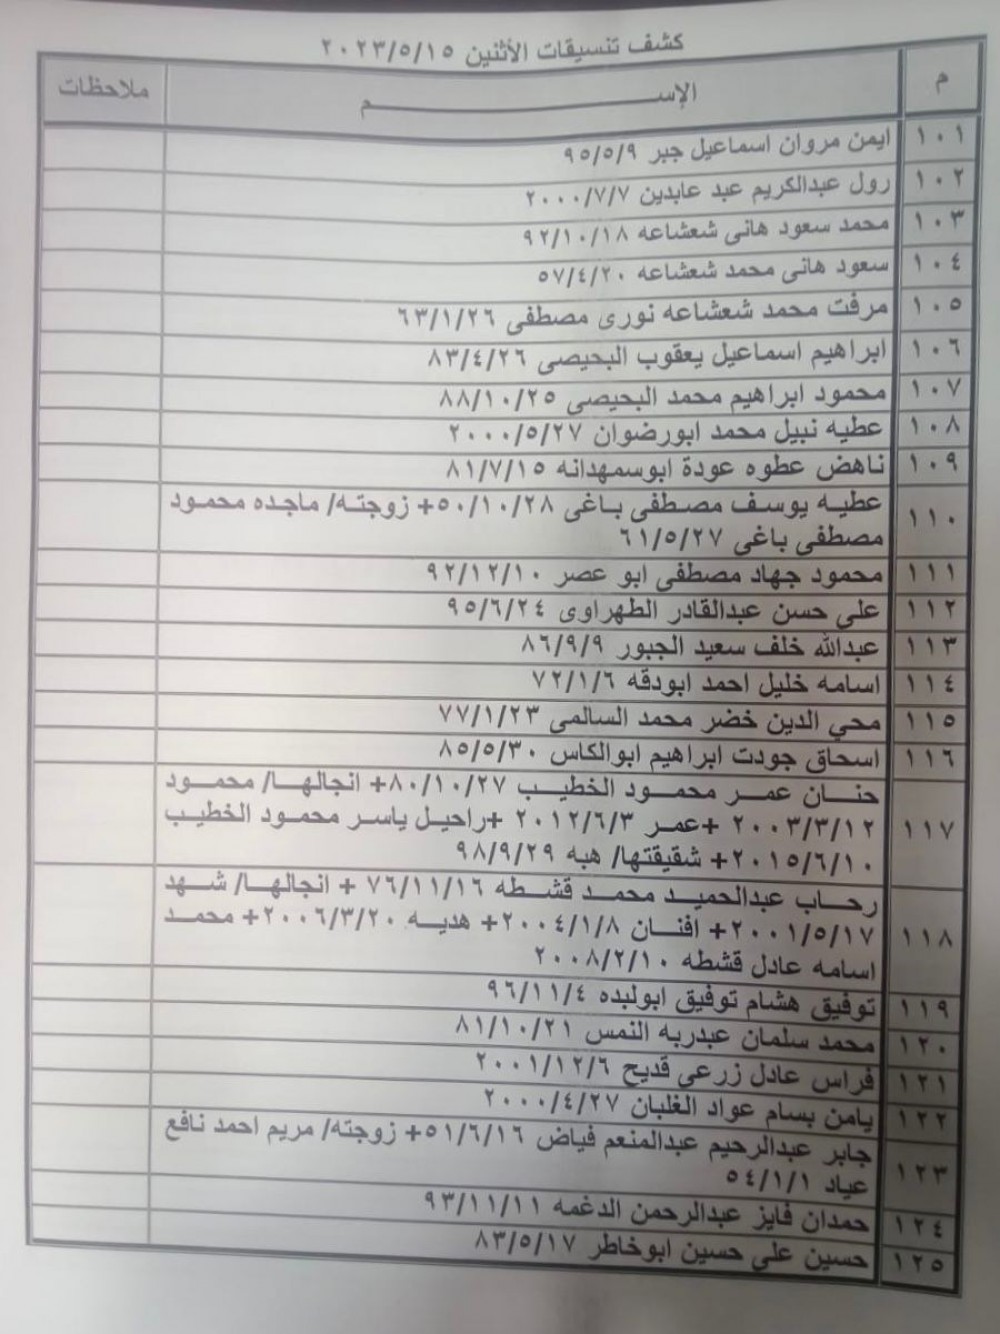 كشف تنسيقات الأثنين ٢٠٢٣/٥/١٥
م الإســـــــم ملاحظات
١٠١ ايمن مروان اسماعيل جبر ٩٥/٥/٩
١٠٢ رول عبدالكريم عبد عابدين ٢٠٠٠/٧/٧
١٠٣ محمد سعود هانى شعشاعه ٩٢/١٠/١٨
١٠٤ سعود هانى محمد شعشاعه ٥٧/٤/٢٠
١٠٥ مرفت محمد شعشاعه نورى مصطفى ٦٣/١/٢٦
١٠٦ ابراهيم اسماعيل يعقوب البحيصى ٨٣/٤/٢٦
١٠٧ محمود ابراهيم محمد البحيصى ٨٨/١٠/٢٥
١٠٨ عطيه نبيل محمد ابورضوان ٢٠٠٠/٥/٢٧
١٠٩ ناهض عطوه عودة ابوسمهدانه ٨١/٧/١٥
١١٠ عطيه يوسف مصطفى باغى ٥٠/١٠/٢٨+ زوجته/ ماجده محمود
مصطفى باغى ٦١/٥/٢٧
١١١ محمود جهاد مصطفى ابو عصر ٩٢/١٢/١٠
١١٢ على حسن عبدالقادر الطهراوى ٩٥/٦/٢٤
١١٣ عبدالله خلف سعيد الجبور ٨٦/٩/٩
١١٤ اسامه خليل احمد ابودقه ٧٢/١/٦
١١٥ محي الدين خضر محمد السالمى ٧٧/١/٢٣
١١٦ اسحاق جودت ابراهيم ابوالكاس ٨٥/٥/٣٠
١١٧ حنان عمر محمود الخطيب ٨٠/١٠/٢٧+ انجالها/ محمود
٢٠٠٣/٣/١٢ +عمر ٢٠١٢/٦/٣ +راحيل ياسر محمود الخطيب
٢٠١٥/٦/١٠+ شقيقتها/ هبه ٩٨/٩/٢٩
١١٨ رحاب عبدالحميد محمد قشطه ٧٦/١١/١٦ + انجالها/ شهد
٢٠٠١/٥/١٧+ افنان ٢٠٠٤/١/٨+ هديه ٢٠٠٦/٣/٢٠+ محمد
اسامه عادل قشطه ٢٠٠٨/٢/١٠
١١٩ توفيق هشام توفيق ابولبده ٩٦/١١/٤
١٢٠ محمد سلمان عبدربه النمس ٨١/١٠/٢١
١٢١ فراس عادل زرعى قديح ٢٠٠١/١٢/٦
١٢٢ يامن بسام عواد الغلبان ٢٠٠٠/٤/٢٧
١٢٣ جابر عبدالرحيم عبدالمنعم فياض ٥١/٦/١٦+ زوجته/ مريم احمد نافع
عياد ٥٤/١/١
١٢٤ حمدان فايز عبدالرحمن الدغمه ٩٣/١١/١١
١٢٥ حسين على حسين ابوخاطر ٨٣/٥/١٧